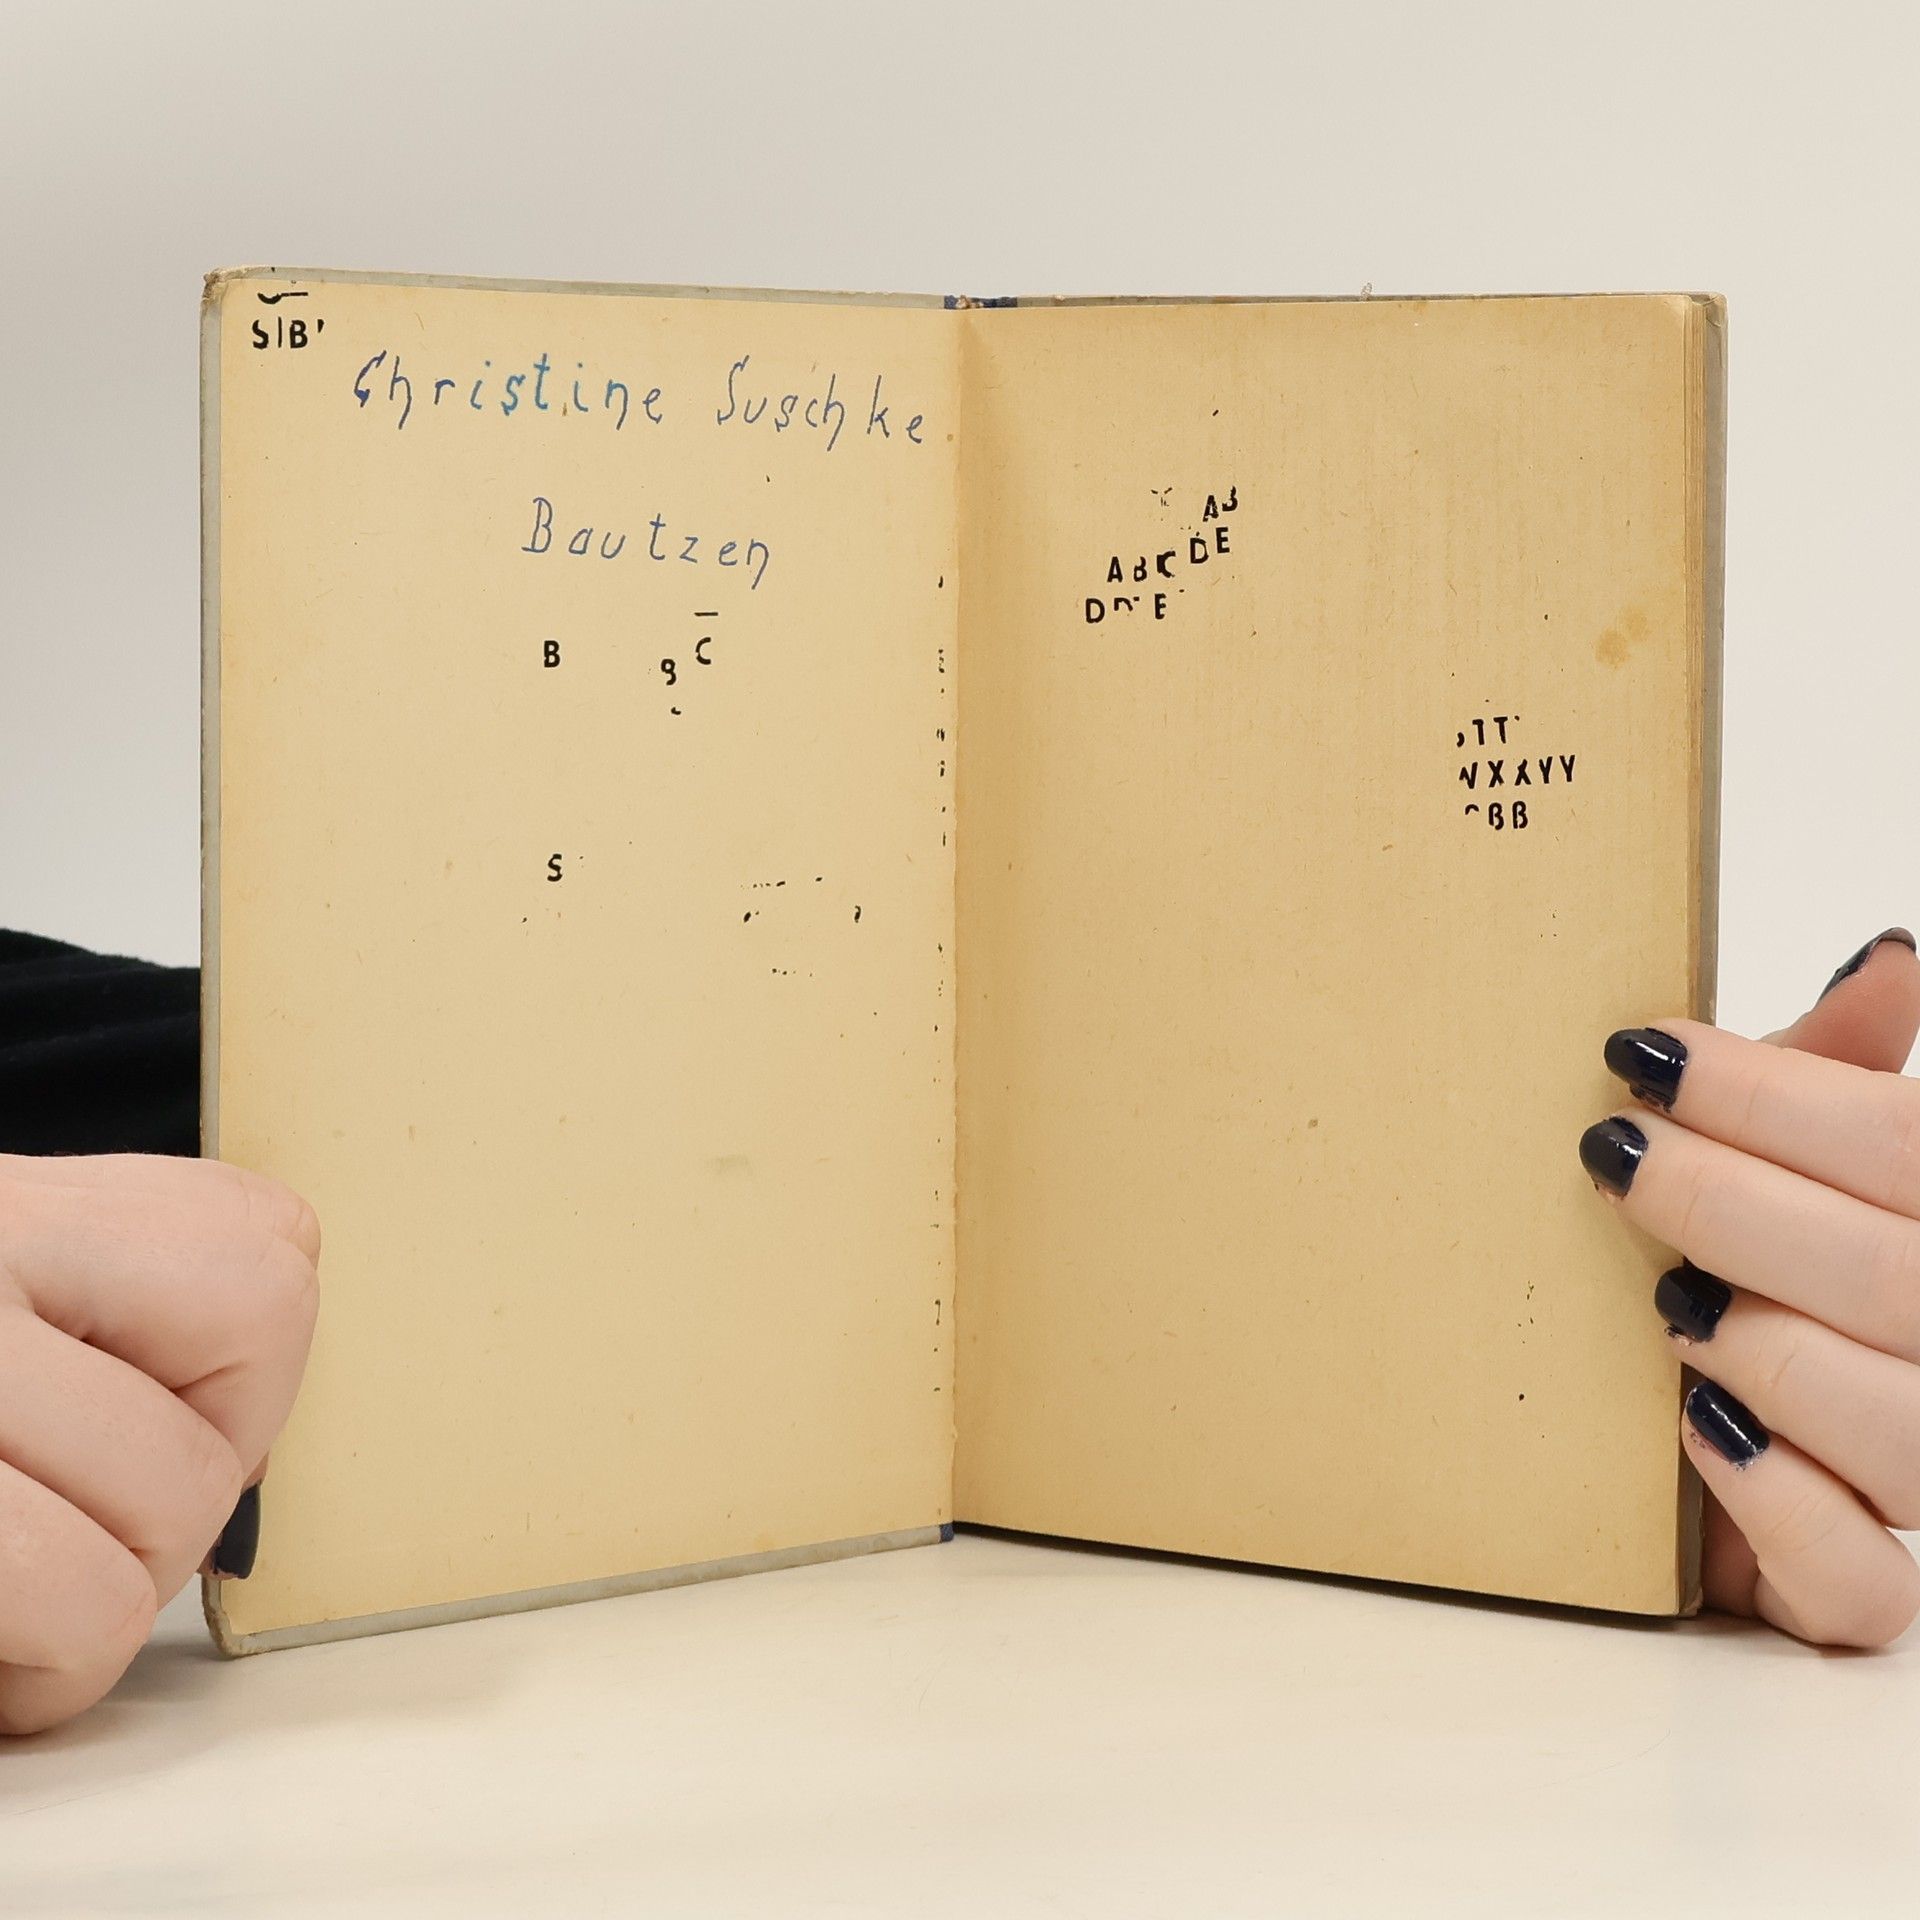 S|B
Christine Suschke
Bautzen
B
C
S
AB
DE
ABC
D E
TT
XXYY
BB